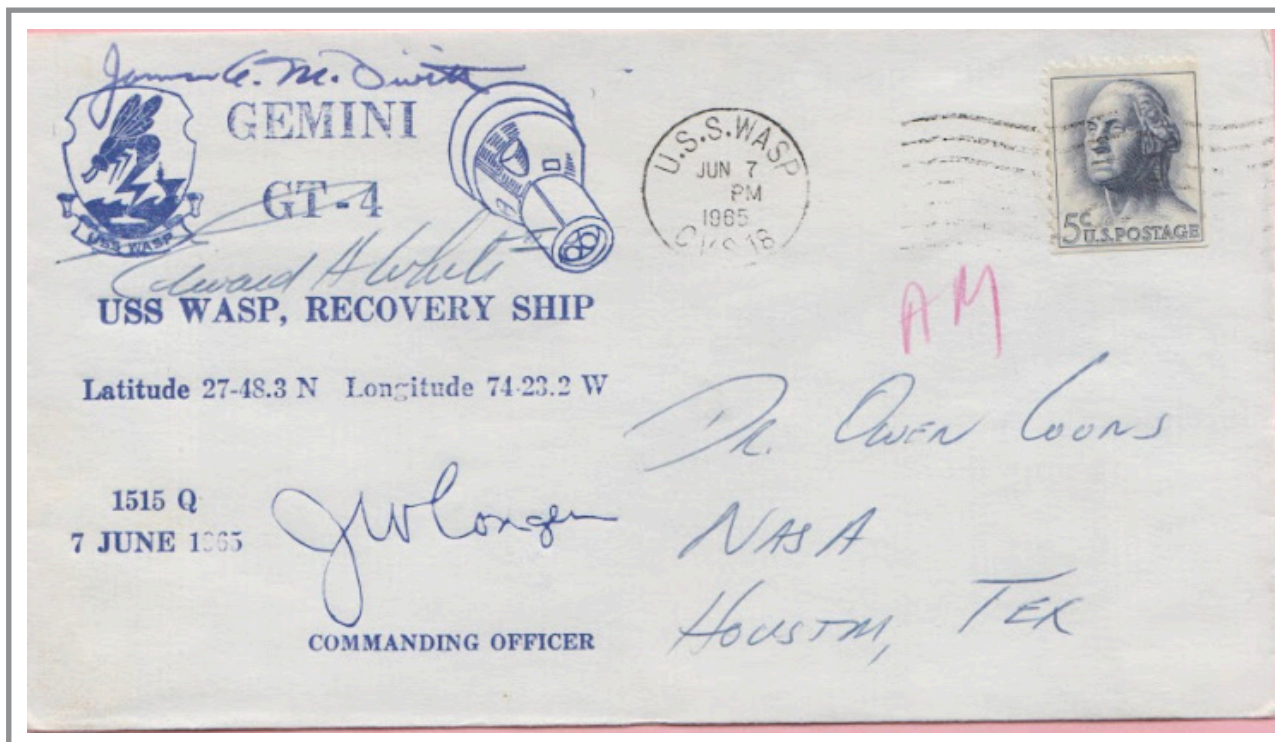 James A. McDivitt
GEMINI
GT-4
USS WASP
Edward H White
USS WASP, RECOVERY SHIP
Latitude 27-48.3 N Longitude 74-23.2 W
1515 Q
7 JUNE 1965
COMMANDING OFFICER
U.S.S. WASP
JUN 7
PM
1965
5c U.S. POSTAGE
AM
DR. OWEN COONS
NASA
HOUSTON, TEX